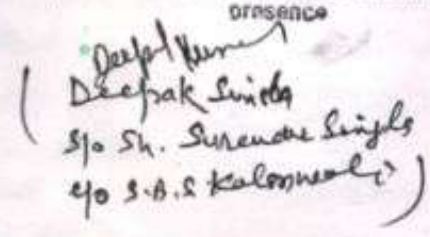 presence
Deepak Kumar
(Deepak Singla
S/o Sh. Surender Singla
S.A.S